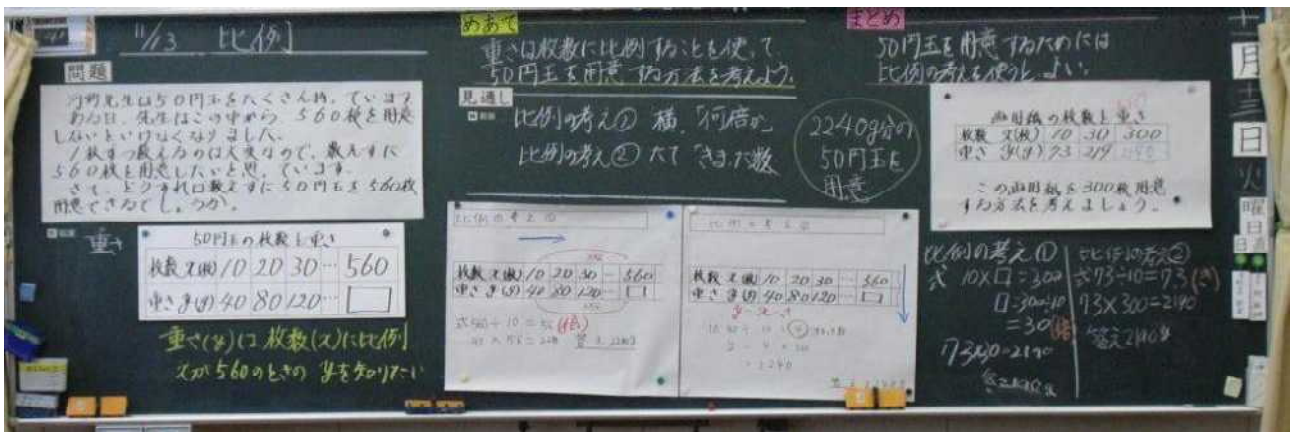 11/13 比例
問題
河野先生は50円玉をたくさん持っています
ある日、先生はこの中から、560枚を用意
しないといけなくなりました。
1枚ずつ数えるのは大変なので、数えずに
560枚を用意したいと思っています。
さて、どうすれば数えずに50円玉を560枚
用意できるでしょうか。
重さ
50円玉の枚数と重さ
枚数 x(枚) 10 20 30 … 560
重さ y(g) 40 80 120 …
重さ(y)は枚数(x)に比例
xが560のときのyを知りたい
めあて
重さは枚数に比例することを使って
50円玉を用意する方法を考えよう。
見通し
比例の考え① 横、「何倍か
比例の考え② たて「きまった数
2240g分の
50円玉を
用意
比例の考え①
枚数 x(枚) 10 20 30 … 560
重さ y(g) 40 80 120 …
式560÷10=56(倍)
40×56=2240 答え 2240g
比例の考え②
枚数 x(枚) 10 20 30 … 560
重さ y(g) 40 80 120 …
y÷x=
まとめ
50円玉を用意するためには
比例の考えを使うとよい。
画用紙の枚数と重さ
枚数 x(枚) 10 30 300
重さ y(g) 73 219
この画用紙を300枚用意
する方法を考えましょう。
比例の考え①
式 10×□=300
□=300÷10
=30(倍)
73×30=2190
答え2190g
比例の考え②
式73÷10=7.3
7.3×300=2190
答え2190g
十一月十三日
火曜日
日直